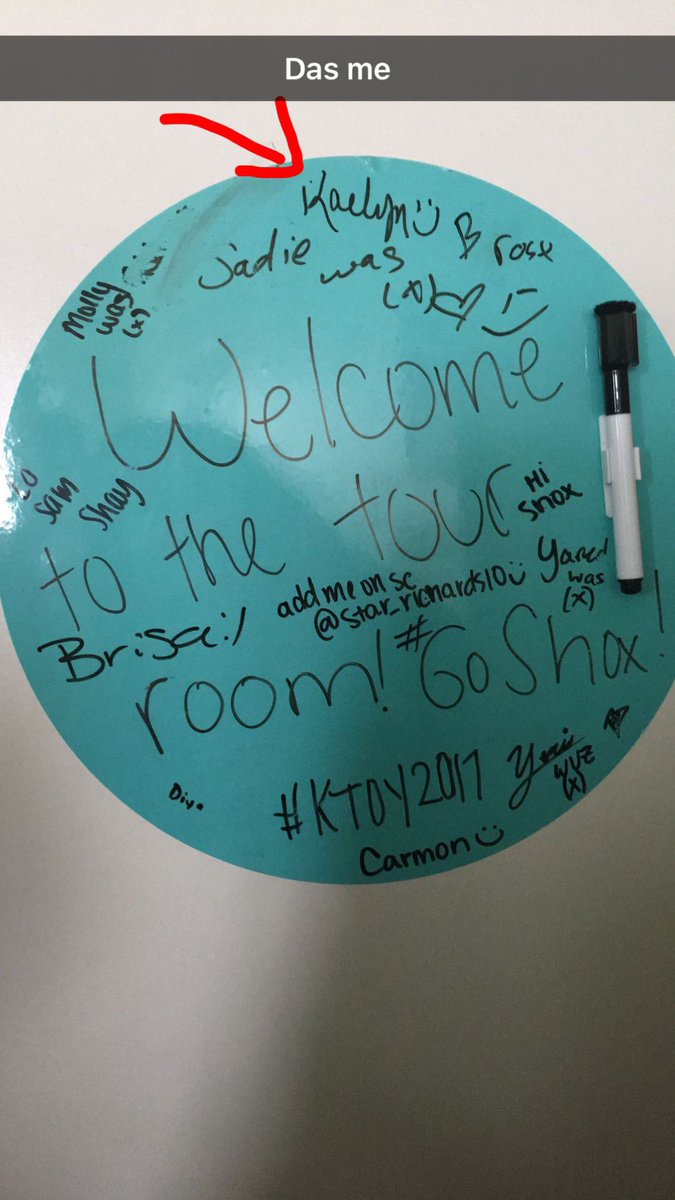 Das me
Kaelyn
B rose
Jadie was
(x)
Molly
was
(x)
Welcome
Sam
Shay
to the tour
Hi
Shox
add me on sc
@star_richards10
was
(x)
Brisa:/
room! #GoShox!
#KTOY2017
wuz
(x)
Carmon